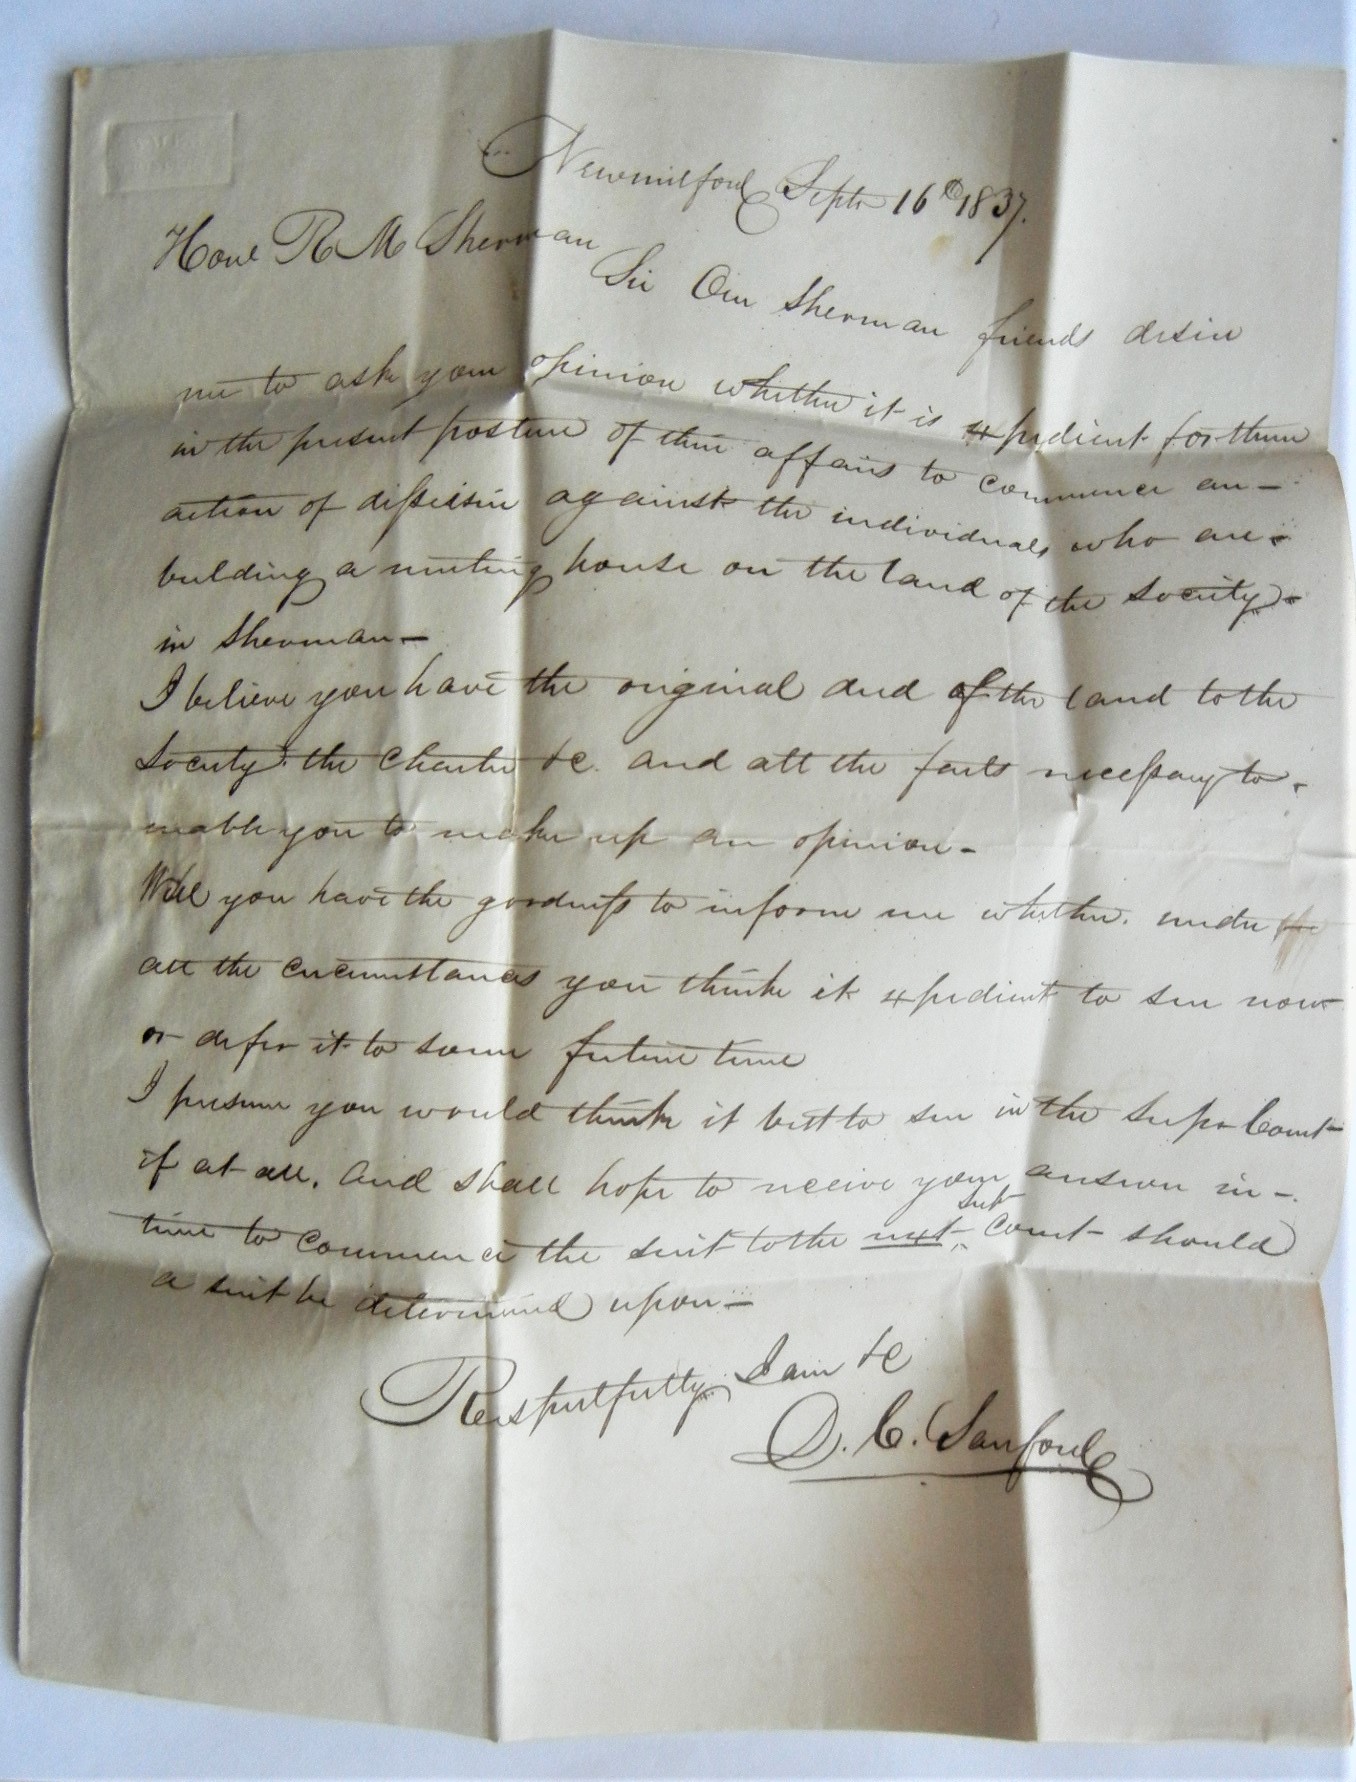 Newmilford Septr 16th 1837.
Hone R M Sherman
Sir Our Sherman friends desire
me to ask your opinion whether it is expedient for them
in the present posture of their affairs to commence an -
action of disseisin against the individuals who are -
building a meeting house on the land of the Society -
in Sherman -
I believe you have the original deed of the land to the
Society the Charter &c. and all the facts necessary to -
enable you to make up an opinion -
Will you have the goodness to inform me whether. under the
all the circumstances you think it expedient to sue now
or defer it to some future time
I presume you would think it best to sue in the Supr Court
if at all. And shall hope to receive your answer in -
time to commence the suit to the next Court should
a suit be determined upon -
Respectfully I am &c
D. C. Sanford